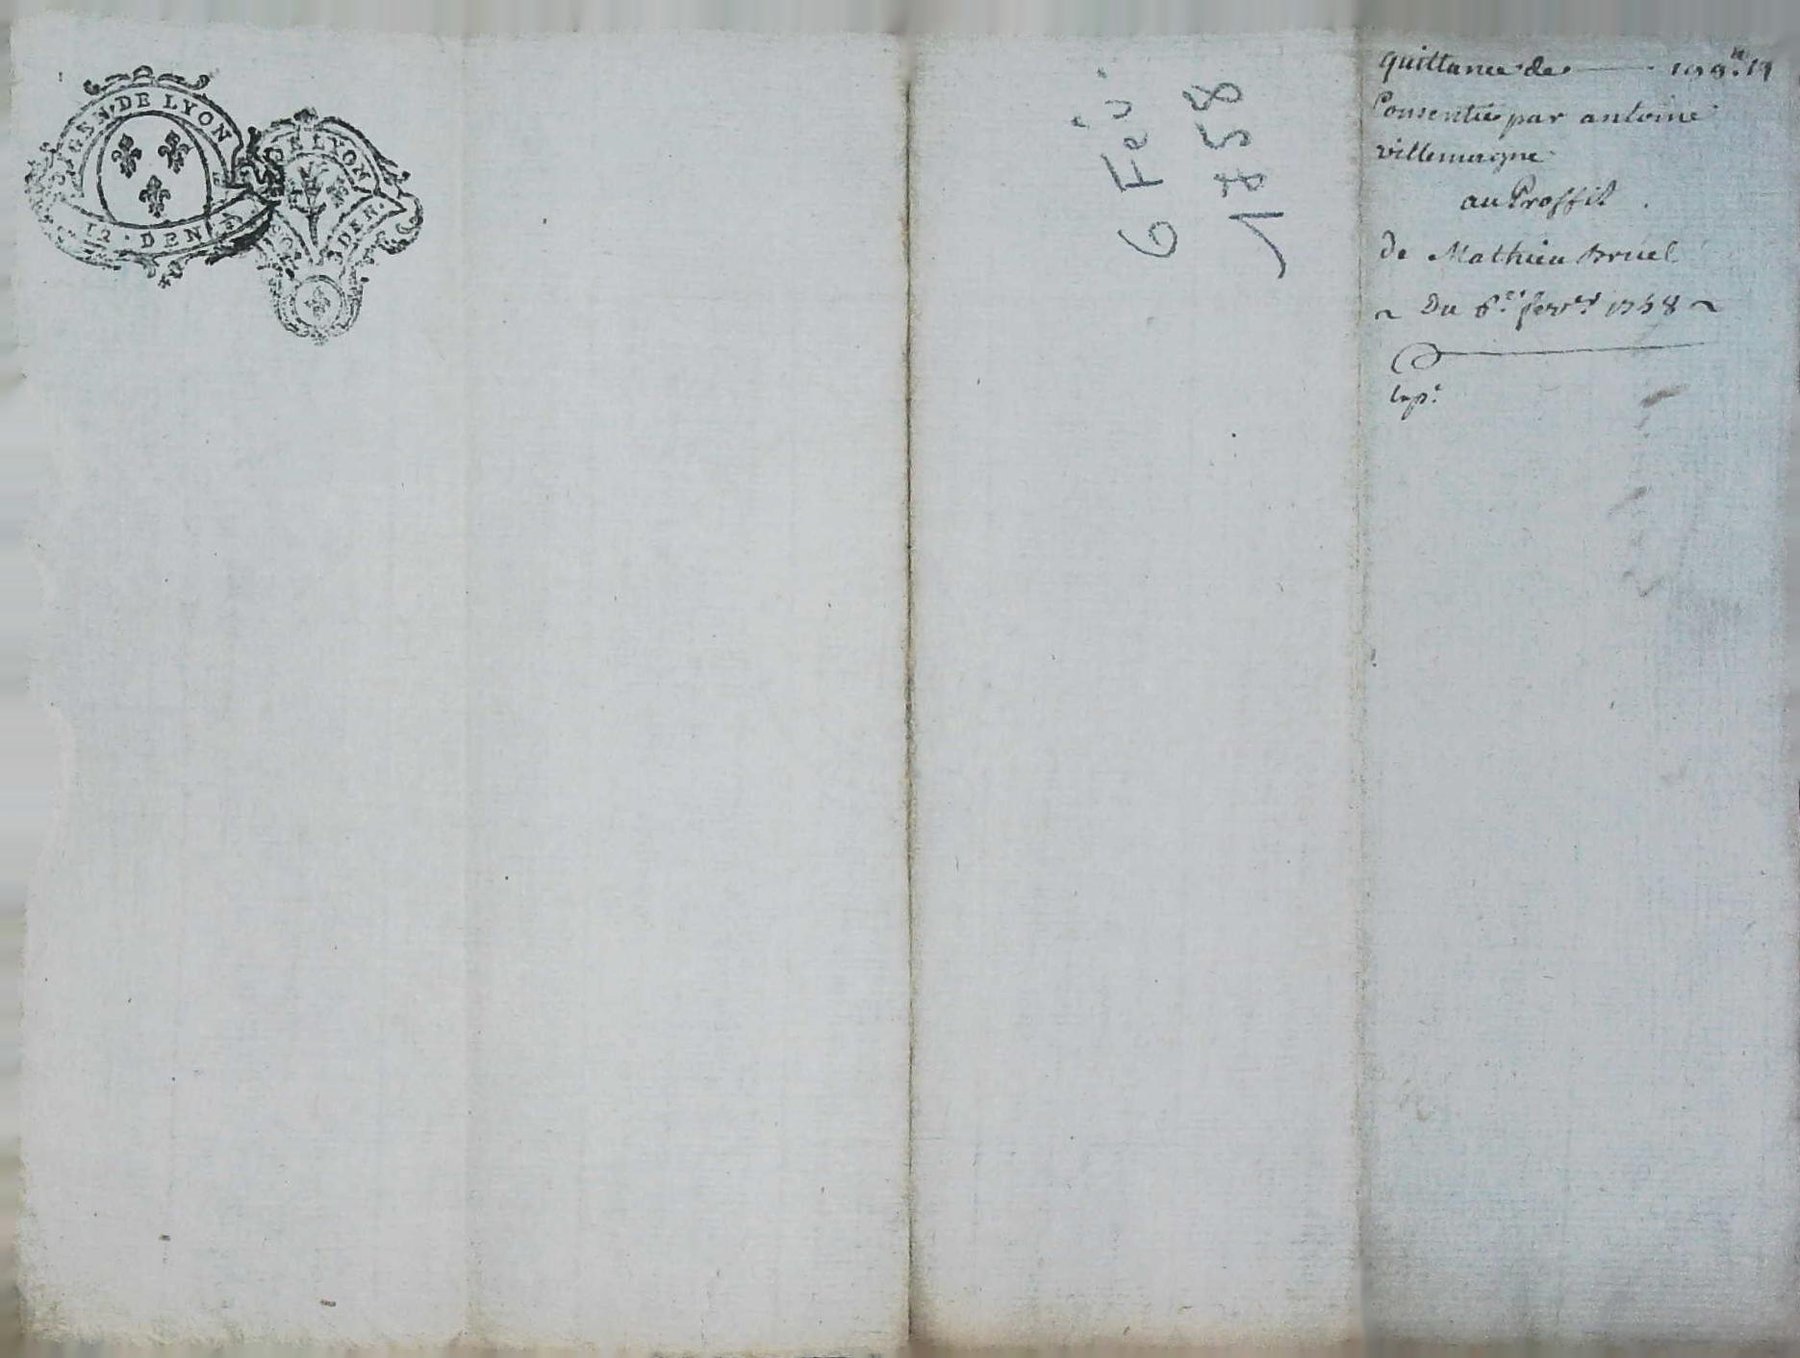 GEN. DE LYON
12 · DEN
DE LYON
DER.
6 Fév.
1758
quittance de
Consentie par antoine
villemagne
au Proffit
de Mathieu Bruel
~ Du 6.e fevr.er 1758 ~